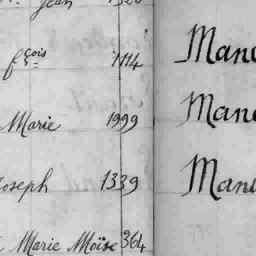 Jean
fçois 1114
Marie 1999
Joseph 1339
Marie Moïse 364
Man
Man
Man